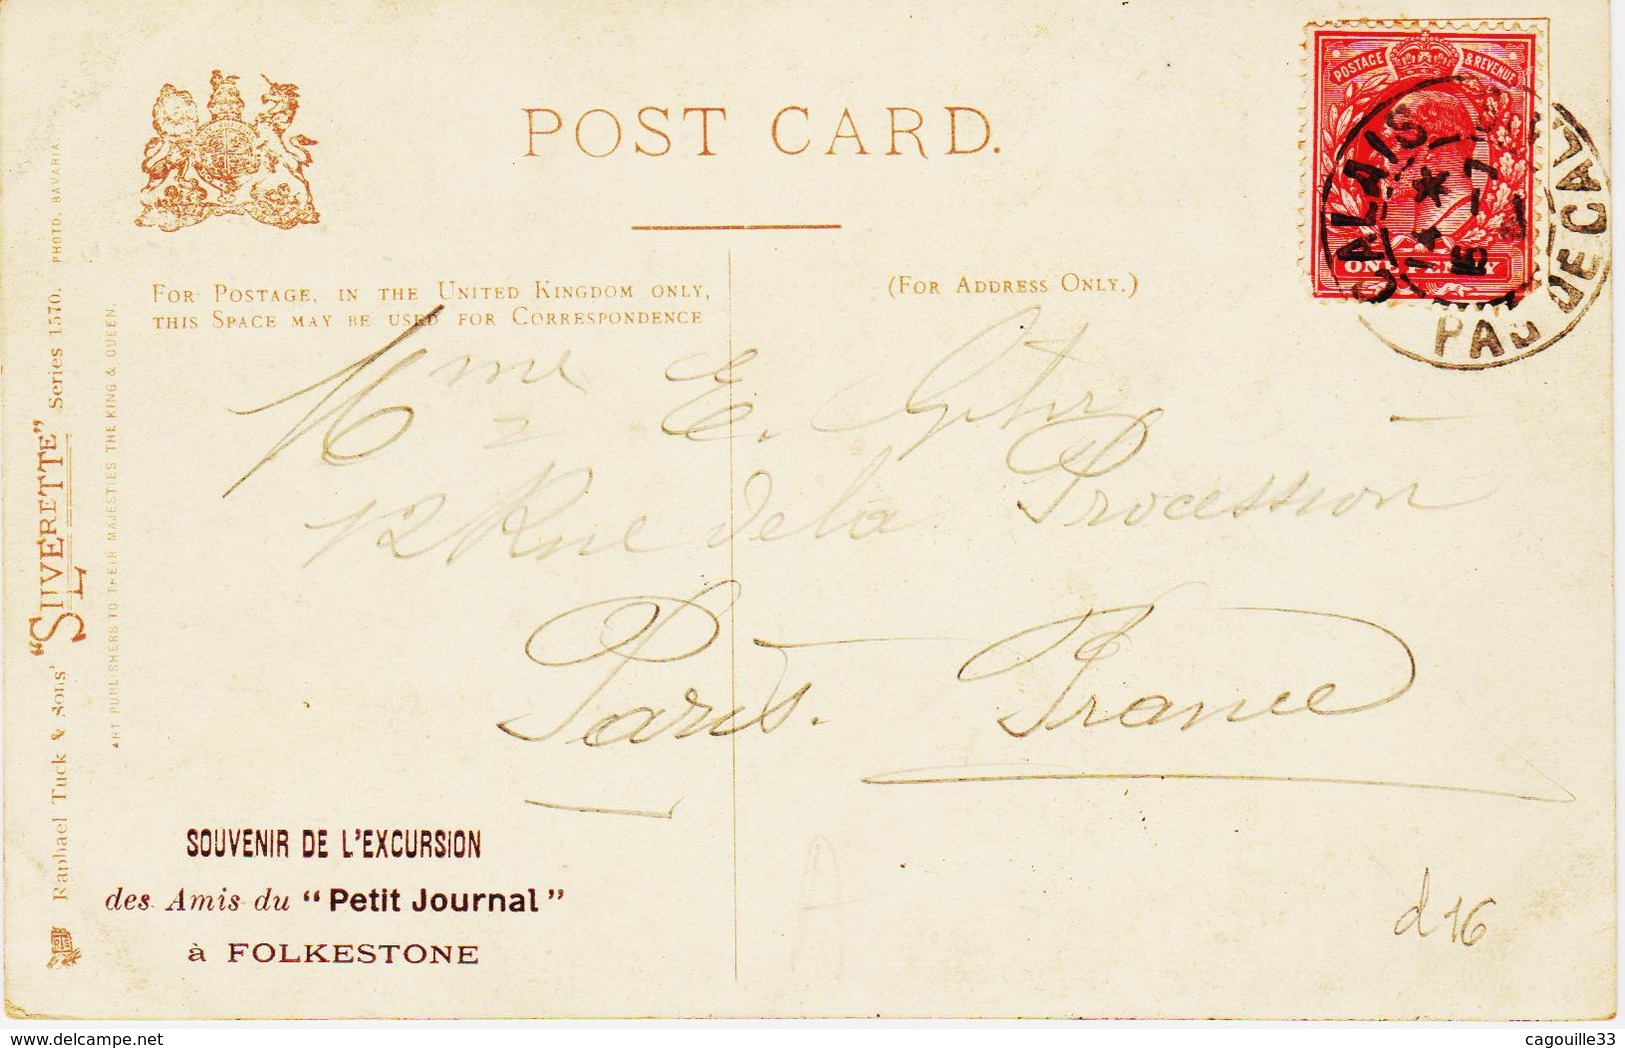 POST CARD.
FOR POSTAGE, IN THE UNITED KINGDOM ONLY,
THIS SPACE MAY BE USED FOR CORRESPONDENCE
(FOR ADDRESS ONLY.)
POSTAGE & REVENUE
ONE PENNY
CALAIS
PAS DE CAL.
Mme E.
12 Rue de la Procession
Paris. France
SOUVENIR DE L'EXCURSION
des Amis du "Petit Journal"
à FOLKESTONE
d16
Raphael Tuck & Sons' "SILVERETTE" Series 1570. PHOTO. BAVARIA.
ART PUBLISHERS TO THEIR MAJESTIES THE KING & QUEEN.
delcampe.net
cagouille33